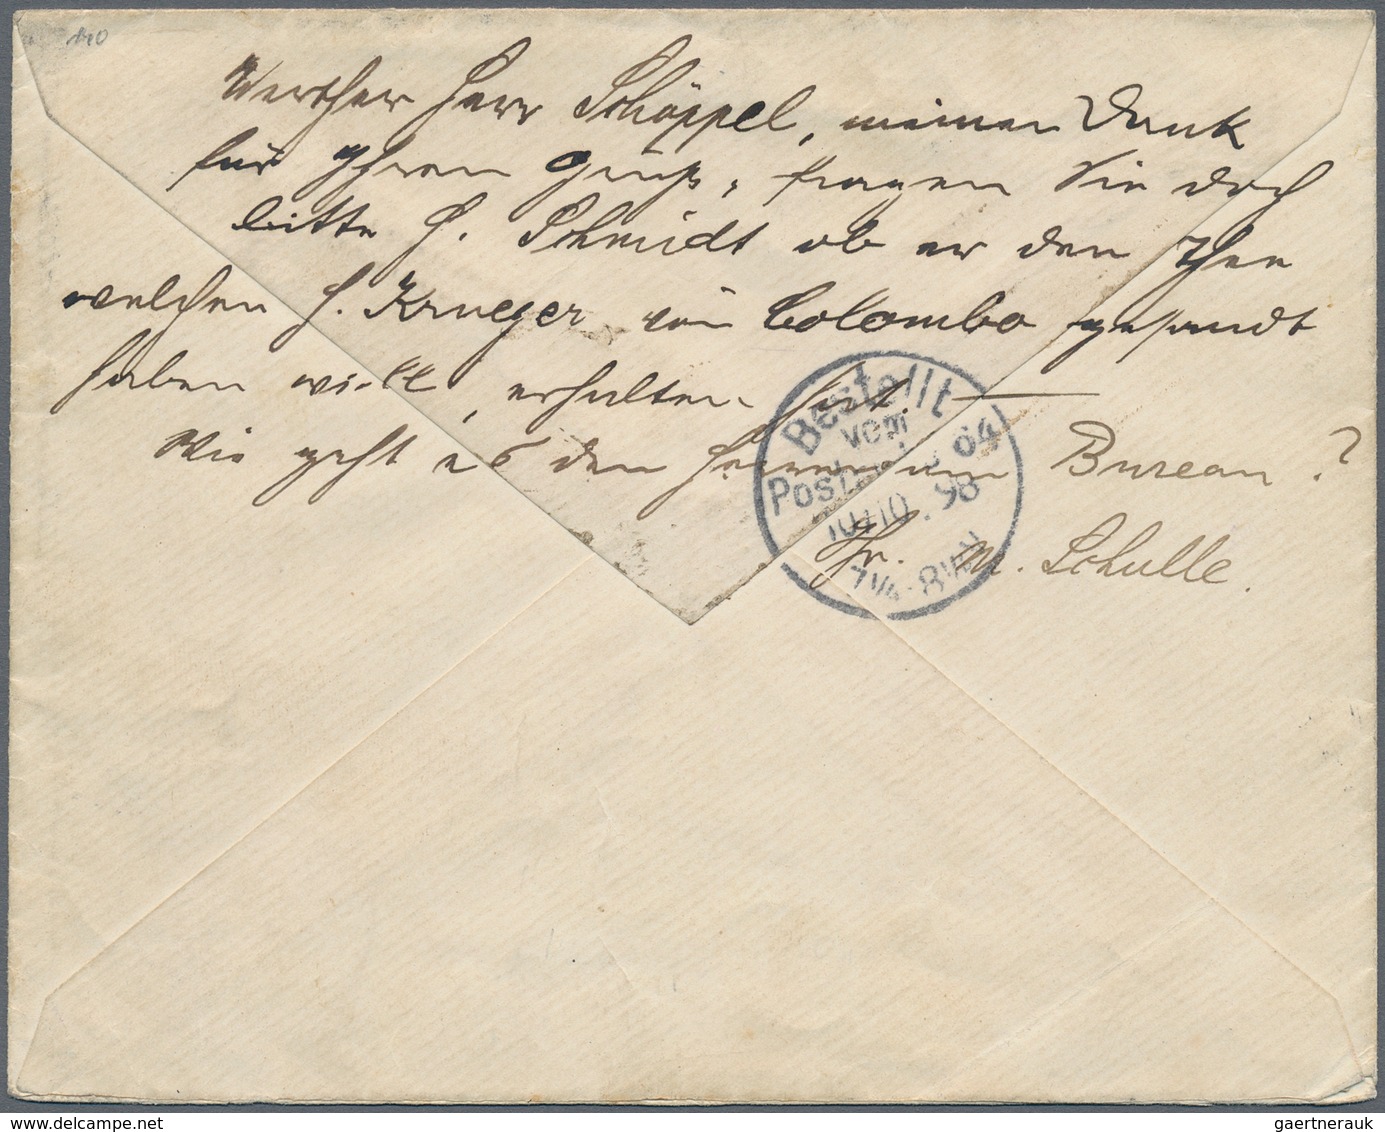 140
Werther Herr Schöppel, meinen Dank
für Ihren Gruß, fragen Sie doch
bitte H. Schmidt ob er den Thee
welchen H. Krueger von Colombo gesandt
haben will, erhalten hat.
Wie geht es den Herren am Bureau?
Ihr. M. Schulle.
Bestellt
vom
Postamte 64
10/10. 98
7¼-8¼V.
delcampe.net
gaertnerauk